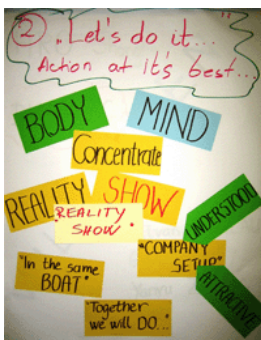 2 „Let's do it... "
Action at it's best...
BODY
MIND
Concentrate
REALITY SHOW
REALITY
SHOW
UNDERSTOOD
"COMPANY
SETUP"
"In the same
BOAT"
ATTRACTIVE
"Together
we will DO..."